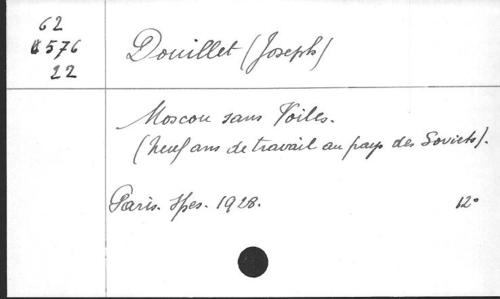 62
576
22
Douillet (Joseph)
Moscou sans Voiles.
(Neuf ans de travail au pays des Soviets).
Paris. Spes. 1928. 12°